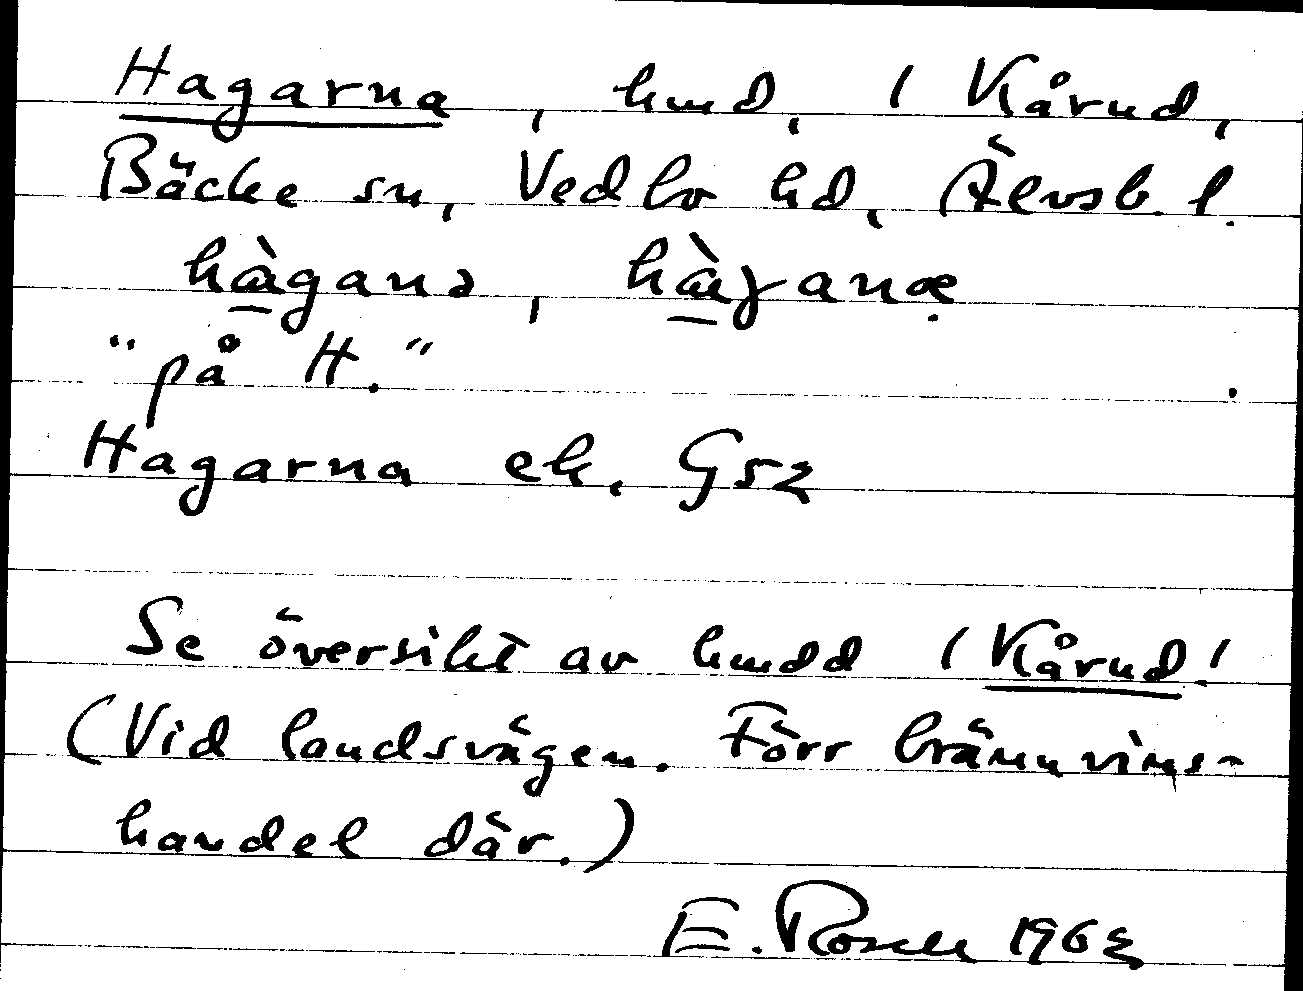 Hagarna, hmd, i Kårud,
Bäcke sn, Vedbo hd, Älvsb. l.
hàganɘ, hàɣanæ
"på H."
Hagarna ek. G52
Se översikt av hmdd i Kårud!
(Vid landsvägen. Förr brännvins-
handel där.)
E. Rosell 1963